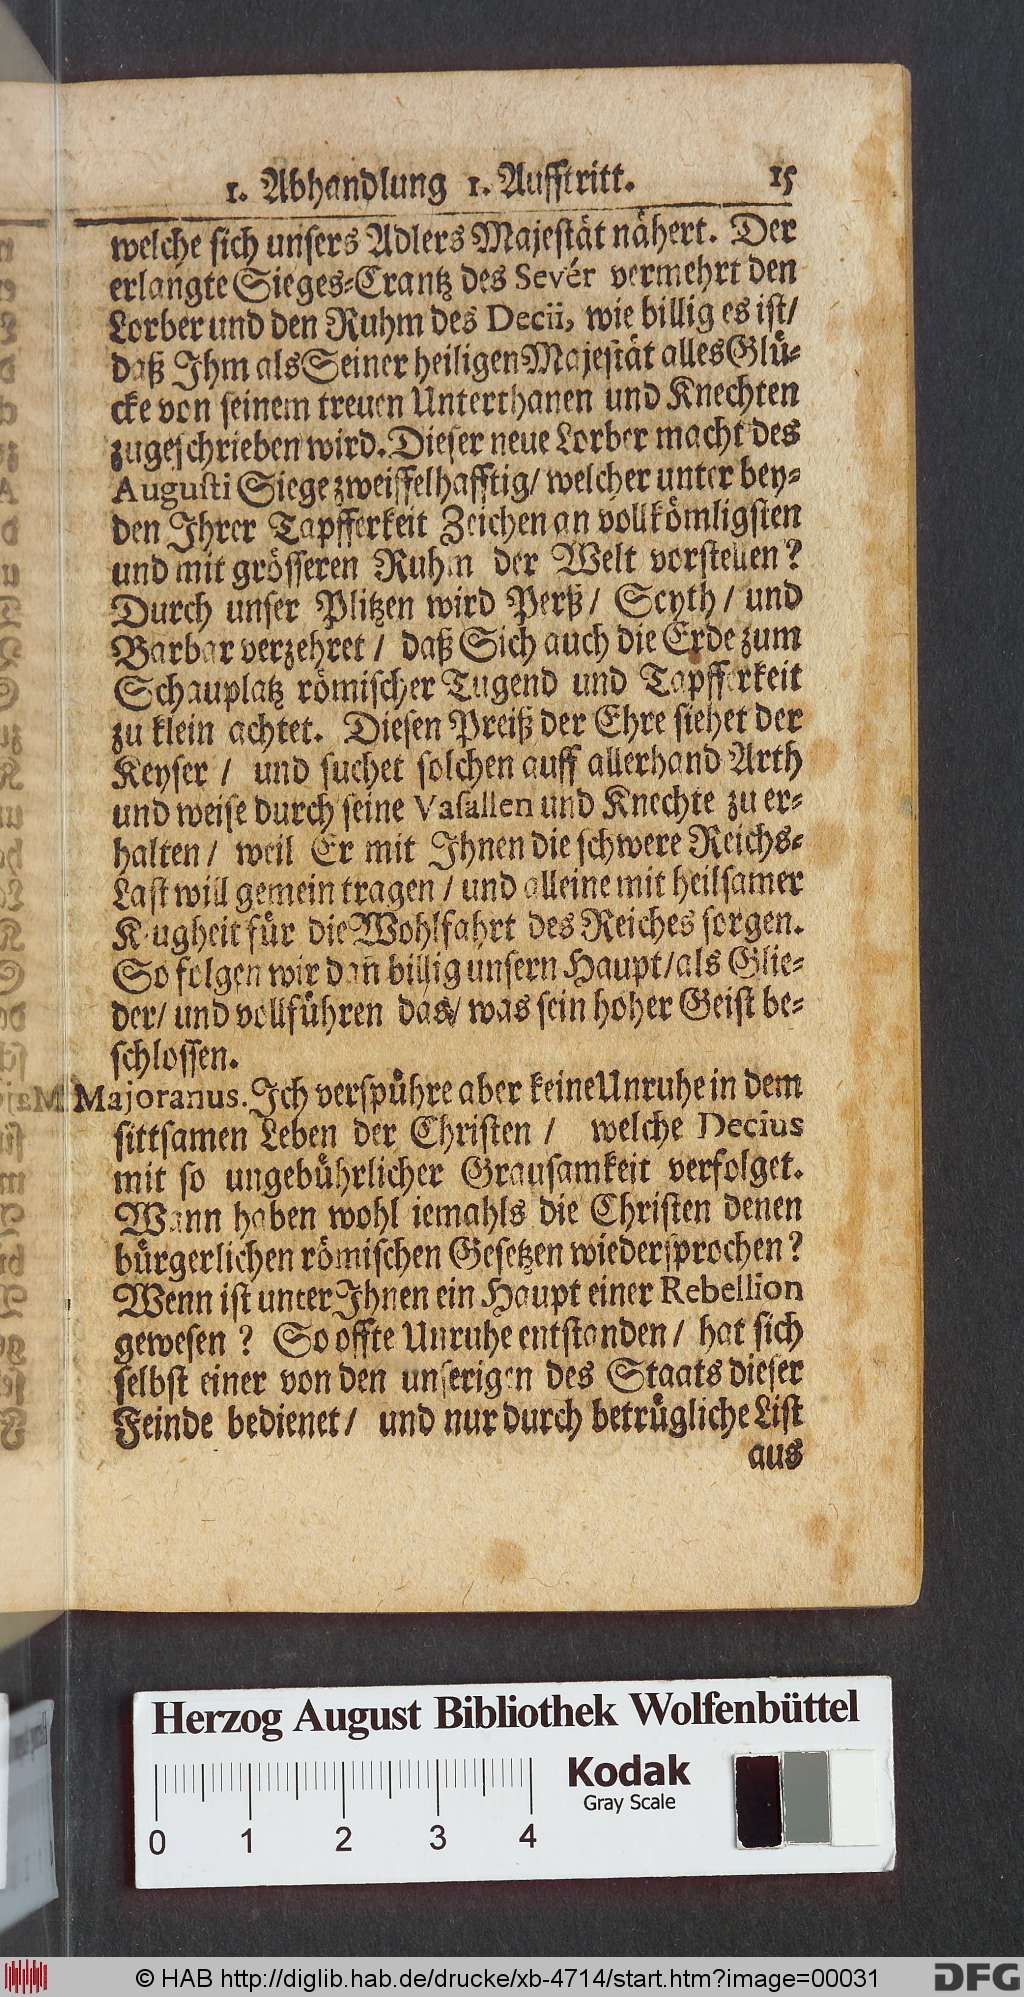 1. Abhandlung 1. Aufftritt. 15
welche sich unsers Adlers Majestät nähert. Der
erlangte Sieges-Crantz des Sevér vermehrt den
Lorber und den Ruhm des Decii, wie billig es ist/
daß Ihm als Seiner heiligen Majestät alles Glü-
cke von seinem treuen Unterthanen und Knechten
zugeschrieben wird. Dieser neue Lorber macht des
Augusti Siege zweiffelhafftig/ welcher unter bey-
den Ihrer Tapfferkeit Zeichen an vollkömligsten
und mit grösseren Ruhm der Welt vorstellen?
Durch unser Plitzen wird Perß/ Scyth/ und
Barbar verzehret/ daß Sich auch die Erde zum
Schauplatz römischer Tugend und Tapfferkeit
zu klein achtet. Diesen Preiß der Ehre siehet der
Keyser/ und suchet solchen auff allerhand Arth
und weise durch seine Vasallen und Knechte zu er-
halten/ weil Er mit Ihnen die schwere Reichs-
Last will gemein tragen/ und alleine mit heilsamer
Klugheit für die Wohlfahrt des Reiches sorgen.
So folgen wir dañ billig unsern Haupt/als Glie-
der/ und vollführen das/ was sein hoher Geist be-
schlossen.
Majoranus. Ich verspühre aber keine Unruhe in dem
sittsamen Leben der Christen/ welche Decius
mit so ungebührlicher Grausamkeit verfolget.
Wann haben wohl iemahls die Christen denen
bürgerlichen römischen Gesetzen wiedersprochen?
Wenn ist unter Ihnen ein Haupt einer Rebellion
gewesen? So offte Unruhe entstanden/ hat sich
selbst einer von den unserigen des Staats dieser
Feinde bedienet/ und nur durch betrügliche List
aus
Herzog August Bibliothek Wolfenbüttel
Kodak
Gray Scale
0 1 2 3 4
© HAB http://diglib.hab.de/drucke/xb-4714/start.htm?image=00031
DFG